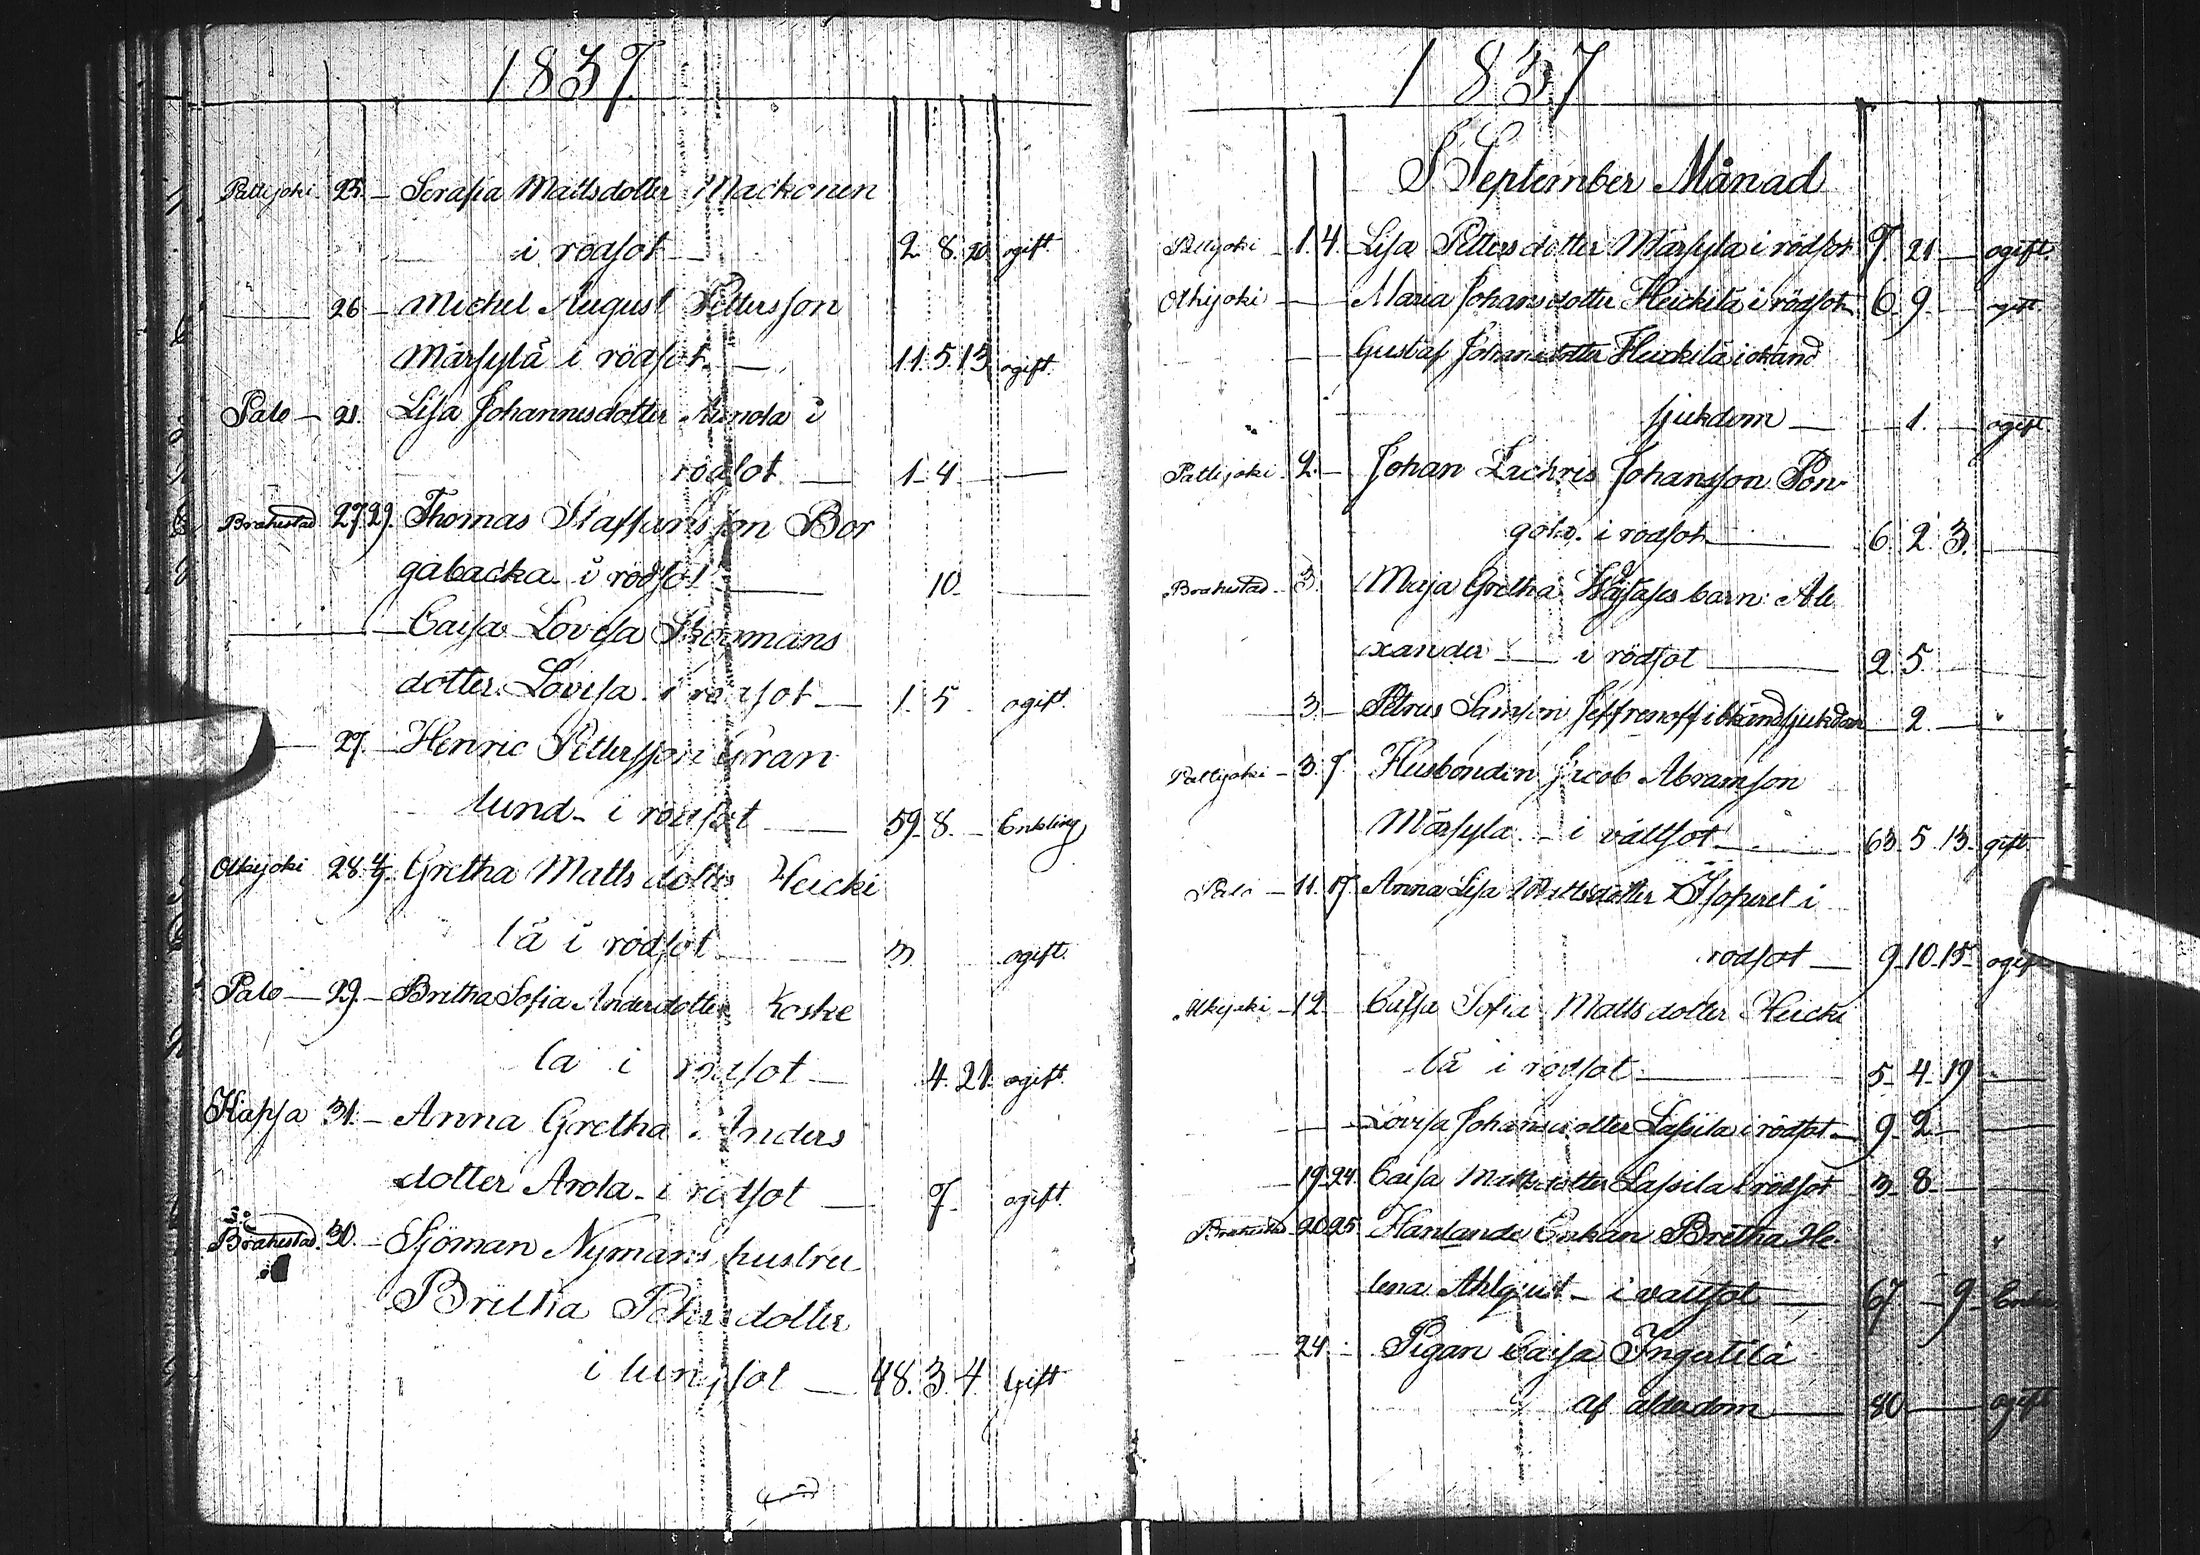 1837
Pattijoki 25 Serafia Mattsdotter Mackonen
i rödsot 2. 8. 20 ogift
26 Michel August Pettersson
Märsylä i rödsot 11. 5. 13 ogift
Palo 21. Lisa Johannesdotter i
rödsot 1 4
Brahestad 27 29. Thomas Staffansson Bor
gabacka i rödsot 10
Caisa Lovisa
dotter Lovisa i rödsot 1 5 ogift
27 Henric Pettersson Gran
lund i rödsot 59 8 Enkling
Olkijoki 28 Gretha Mattsdotter Heicki
lä i rödsot 3 ogift
Palo 29 Britha Sofia Andersdotter Koske
la i rödsot 4 21 ogift
Hapsa 31 Anna Gretha Anders
dotter Arola i rödsot 7 ogift
Brahestad 30 Sjöman Nymans hustru
Britha Pehrsdotter
i lungsot 48. 3. 4. Gift
1837
September Månad
Pattijoki 1. 4. Lisa Pettersdotter Märsyla i rödsot 7 21 ogift
Olkijoki Maria Johansdotter Heickilä i rödsot 6 9 ogift
Gustaf Johansdotter Heickilä i okänd
sjukdom 1. ogift
Pattijoki 2 Johan Zachris Johansson Pon
goto i rödsot 6. 2 3.
Brahestad 3. Maja Gretha barn Ale
xander i rödsot 2 5
3 Petrus Samson i okänd sjukdom 2
Pattijoki 3. 7 Husbonden Jacob Abramson
Märsyla i vattsot 63 5 13 gift
Palo 11. 17. Anna Lisa Mattsdotter i
rödsot 9 10 15 ogift
Olkijoki 12 Caisa Sofia Mattsdotter Heicki
lä i rödsot 5 4 19
Lovisa Johansdotter Lassila i rödsot 9 2
19 24. Caisa Mattsdotter Lassila i rödsot 3 8
Brahestad 20 25 Enkan Britha He
lena Ahlquist i vattsot 67 9 Enka
24 Pigan Caisa Ingatila
af ålderdom 80 ogift